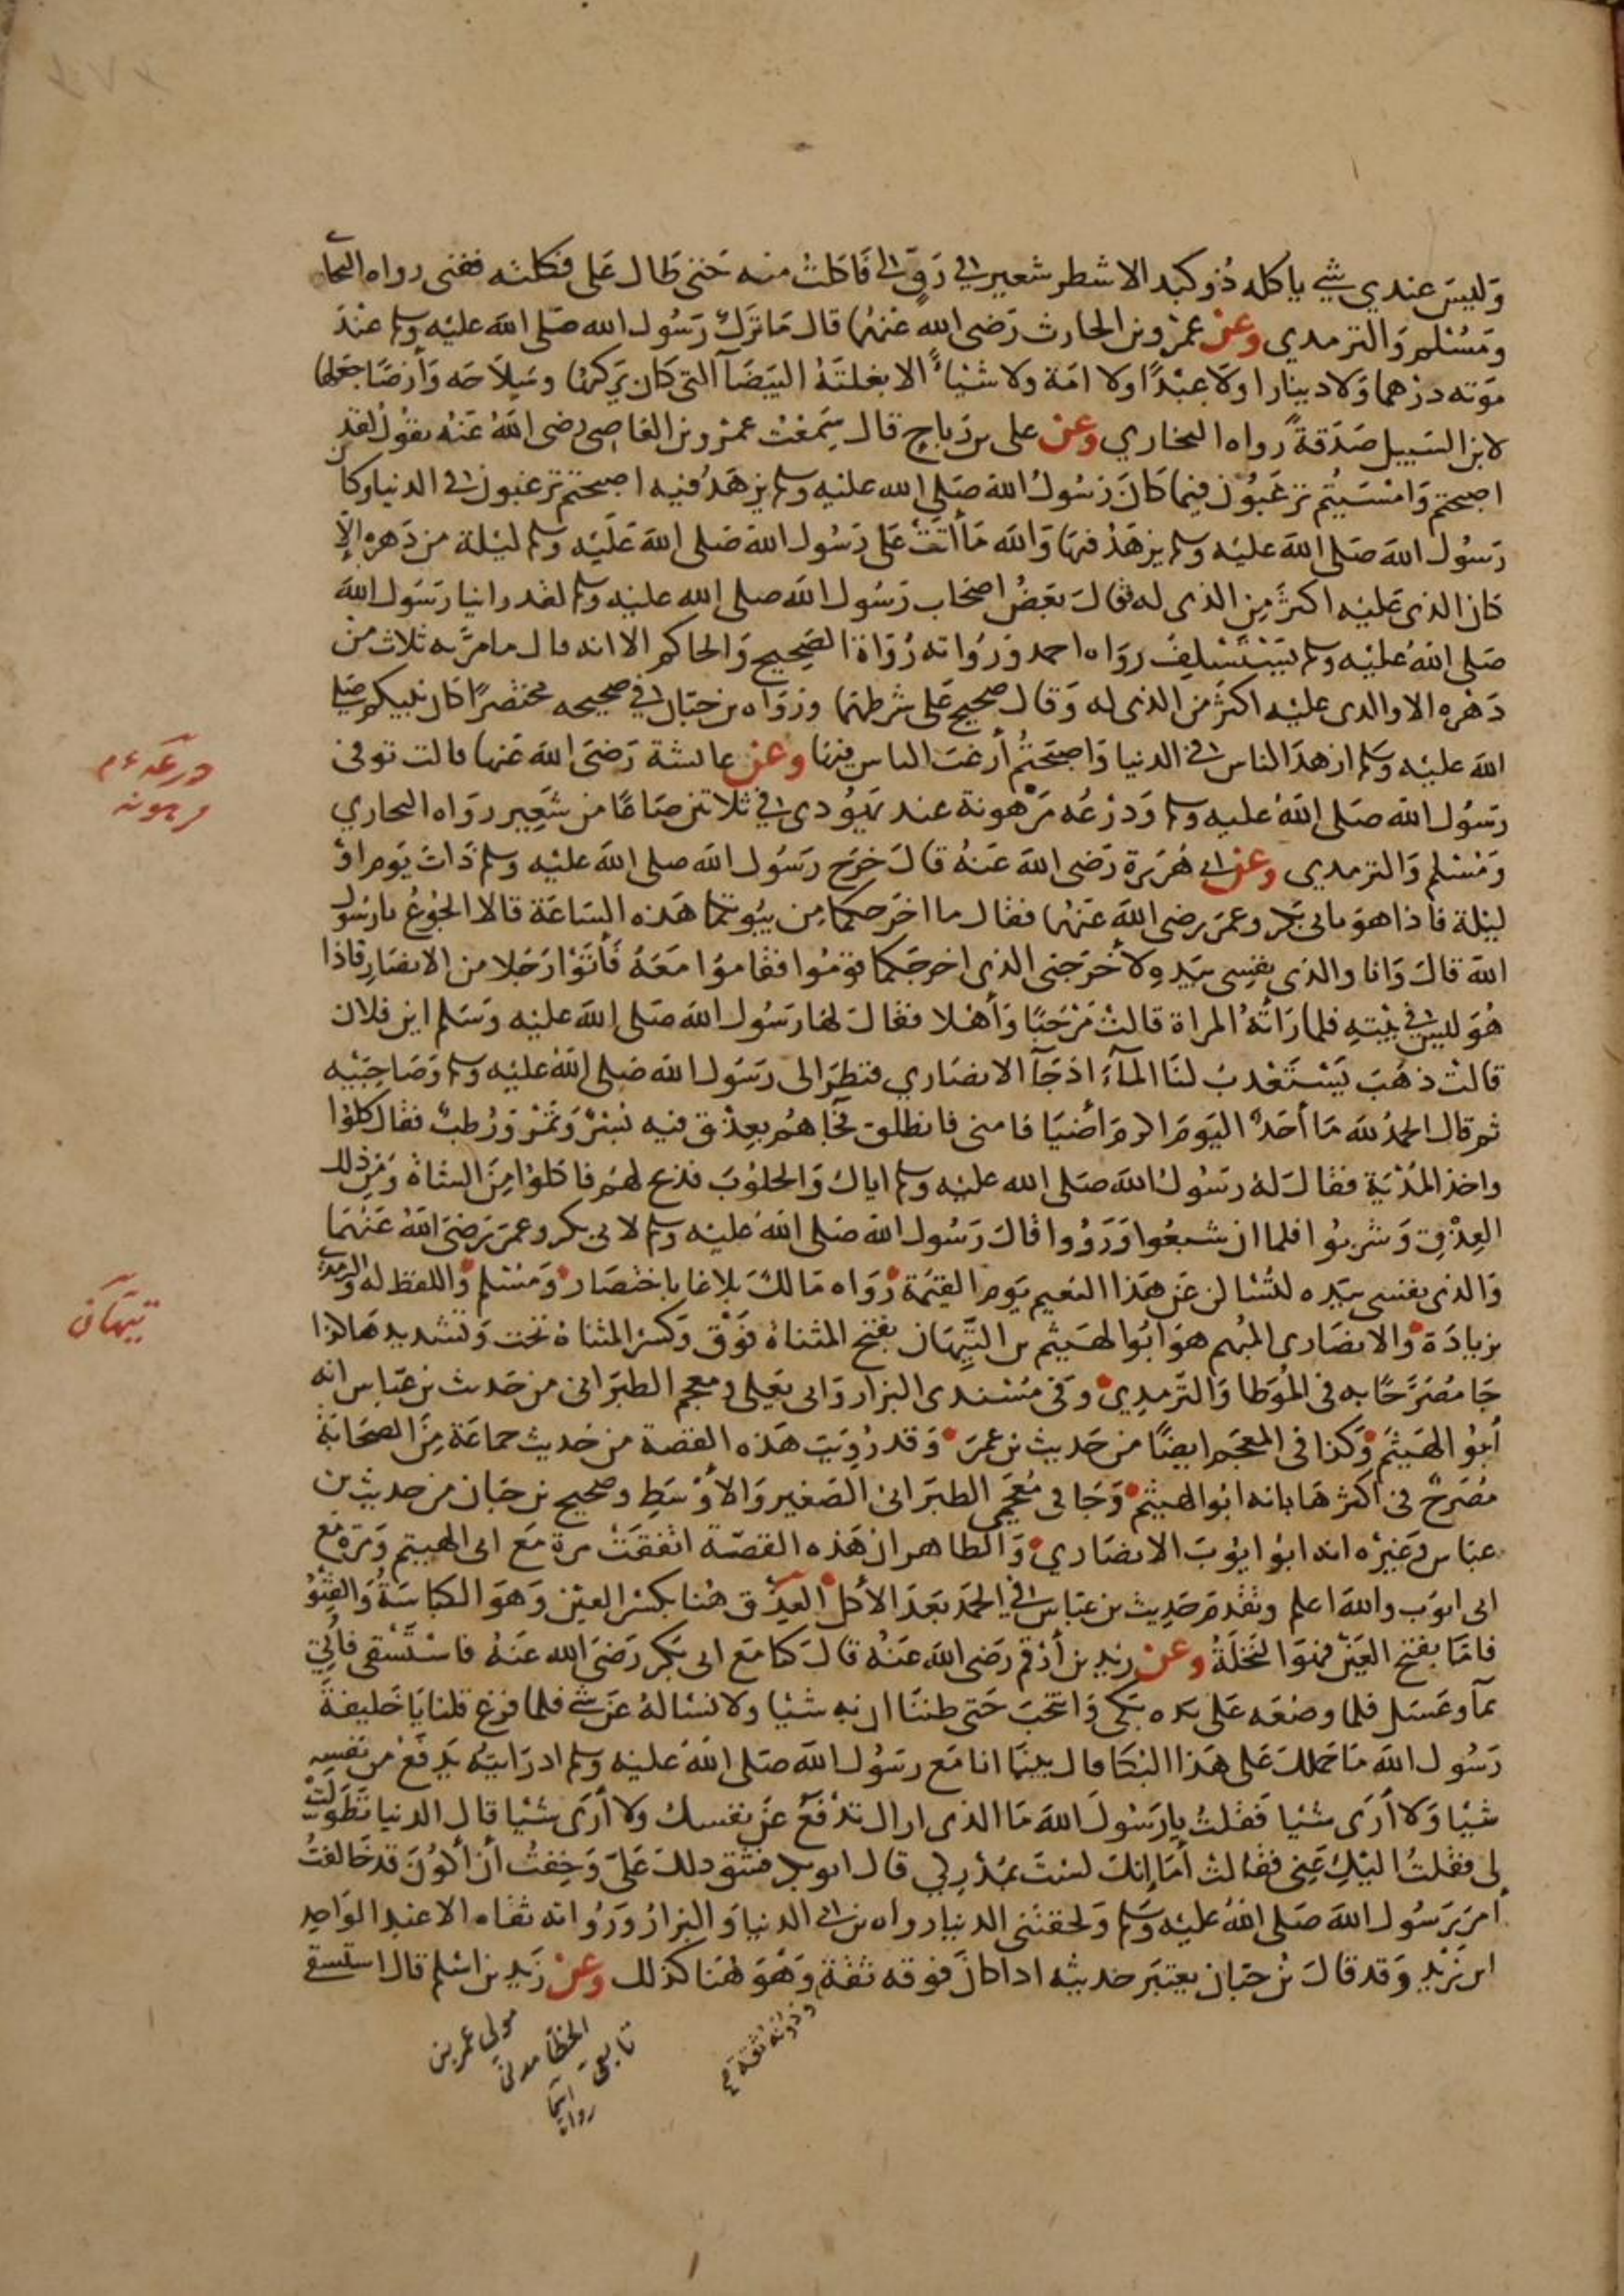 وليس عندي شيء ياكله ذو كبد الا شطر شعير في رف لي فاكلت منه حتى طال على فكلته ففنى رواه البخا
ومسلم والترمدي وعن عمرو بن الحارث رضى الله عنهما قال ما ترك رسول الله صلى الله عليه وسلم عند
موته درهما ولا دينارا ولا عبدا ولا امة ولا شيئا الا بغلته البيضا التى كان يركبها وسلاحه وأرضا جعلها
لابن السبيل صدقة رواه البخاري وعن على بن رباح قال سمعت عمرو بن العاصى رضى الله عنه يقول لقد
اصبحتم وامسيتم ترغبون فيما كان رسول الله صلى الله عليه وسلم يزهد فيه اصبحتم ترغبون في الدنيا وكان
رسول الله صلى الله عليه وسلم يزهد فيها والله ما أتت على رسول الله صلى الله عليه وسلم ليلة من دهره الا
كان الذى عليه اكثر من الذى له فقال بعض اصحاب رسول الله صلى الله عليه وسلم لقد راينا رسول الله
صلى الله عليه وسلم يستسلف رواه احمد ورواته رواة الصحيح والحاكم الا انه قال ما مر به ثلاث من
دهره الا والدى عليه اكثر من الذى له وقال صحيح على شرطهما ورواه بن حبان في صحيحه مختصرا كان نبيكم صلى
الله عليه وسلم ازهد الناس في الدنيا واصبحتم أرغب الناس فيها وعن عائشة رضى الله عنها قالت توفى
رسول الله صلى الله عليه وسلم ودرعه مرهونة عند يهودى في ثلاثين صاعا من شعير رواه البحاري
ومسلم والترمدي وعن ابي هريرة رضى الله عنه قال خرج رسول الله صلى الله عليه وسلم ذات يوم او
ليلة فاذا هو بابى بكر وعمر رضى الله عنهما فقال ما اخرجكما من بيوتكما هذه الساعة قالا الجوع يا رسول
الله قال وانا والذى نفسى بيده لأخرجنى الذى اخرجكما قوموا فقاموا معه فأتوا رجلا من الانصار فاذا
هو ليس في بيته فلما راته المراة قالت مرحبا وأهلا فقال لها رسول الله صلى الله عليه وسلم اين فلان
قالت ذهب يستعذب لنا المآء اذ جآ الانصاري فنظر الى رسول الله صلى الله عليه وسلم وصاحبيه
ثم قال الحمد لله ما أحد اليوم اكرم أضيافا منى فانطلق فجاهم بعذق فيه بسر وتمر ورطب فقال كلوا
واخذ المدية فقال له رسول الله صلى الله عليه وسلم اياك والحلوب فذبح لهم فاكلوا من الشاة ومن ذلك
العذق وشربوا فلما ان شبعوا ورووا قال رسول الله صلى الله عليه وسلم لابى بكر وعمر رضى الله عنهما
والذى نفسى بيده لتسالن عن هذا النعيم يوم القيمة رواه مالك بلاغا باختصار ومسلم واللفظ له والترمذى
بزيادة والانصارى المبهم هو ابو الهيثم بن التيهان بفتح المثناة فوق وكسر المثناة تحت وتشديدها كذا
جا مصرحا به فى الموطا والترمدي وفى مسندى البزار وابى يعلى ومعجم الطبرانى من حديث بن عباس انه
أبو الهيثم وكذا فى المعجم ايضا من حديث بن عمر وقد رويت هذه القصة من حديث جماعة من الصحابة
مصرح فى اكثرها بانه ابو الهيثم وجا فى معجمى الطبرانى الصغير والأوسط وصحيح بن حبان من حديث بن
عباس وغيره انه ابو ايوب الانصاري والظاهر ان هذه القصة اتفقت مرة مع ابى الهيثم ومرة مع
ابى ايوب والله اعلم وتقدم حديث بن عباس في الحمد بعد الأكل العذق هنا بكسر العين وهو الكباسة والقنو
فاما بفتح العين فهو النخلة وعن زيد بن أرقم رضى الله عنه قال كنا مع ابى بكر رضى الله عنه فاستسقى فأتي
بمآ وعسل فلما وضعه على يده بكى وانتحب حتى ظننا ان به شيئا ولا نساله عن شي فلما فرغ قلنا يا خليفة
رسول الله ما حملك على هذا البكا قال بينما انا مع رسول الله صلى الله عليه وسلم اذ رايته يدفع عن نفسه
شيا ولا أرى شيئا فقلت يا رسول الله ما الذى اراك تدفع عن نفسك ولا أرى شيئا قال الدنيا تطولت
لى فقلت اليك عني فقالت أما إنك لست بمدركي قال ابو بكر فشق ذلك علي وخفت أن أكون قد خالفت
أمر رسول الله صلى الله عليه وسلم ولحقتنى الدنيا رواه بن ابي الدنيا والبزار ورواته ثقات الا عبد الواحد
ابن زيد وقد قال بن حبان يعتبر حديثه اذا كان فوقه ثقة وهو هنا كذلك وعن زيد بن اسلم قال استسقى
درعه ع م
مرهونه
تيهان
ودونه ثقة
مولى عمر بن
الخطاب مدنى
تابعى